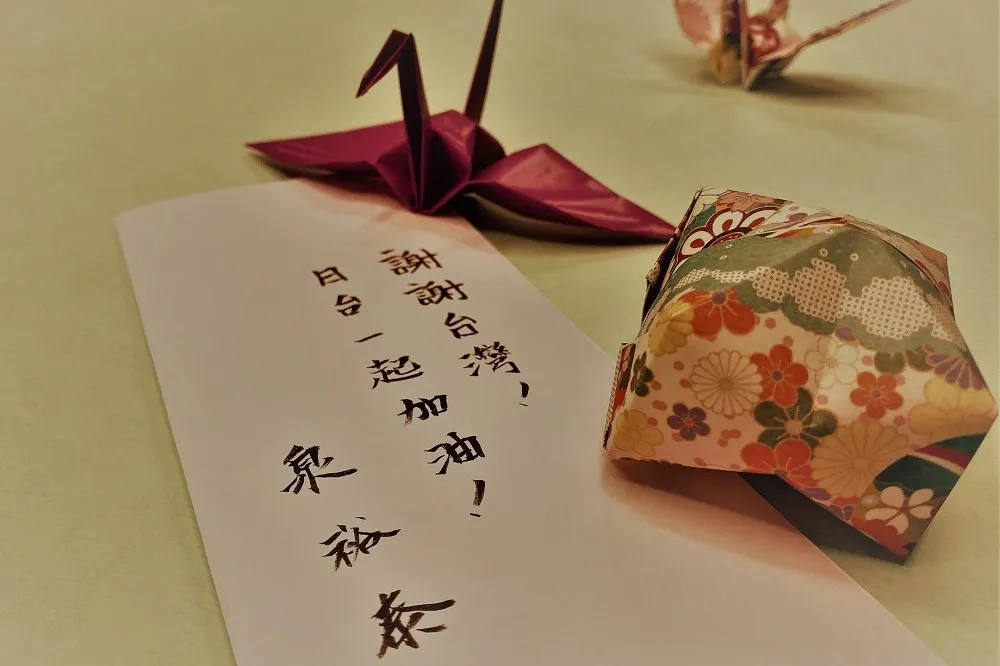 謝謝台灣!
日台一起加油!
泉裕泰